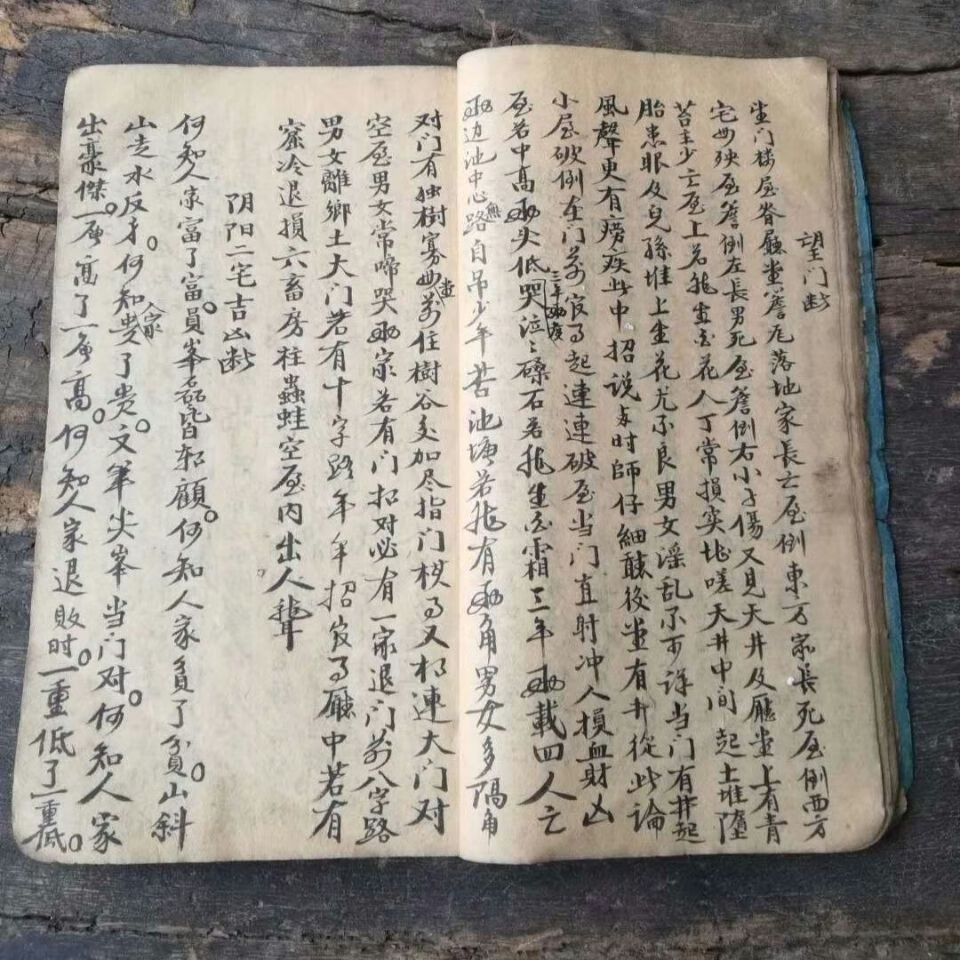 望门断
坐门楼屋脊厅堂簷瓦落地家長亡屋倒東方家長死屋倒西方
宅母殃屋簷倒左長男死屋簷倒右小子傷又見天井及廳堂上有青
苔主少亡屋上若 生花人丁常損 地嗟天井中间起土堆墮
胎患眼及兒孫堆上生花尤不良男女淫乱不可详当门有井起
風聲更有痨疾此中招说与时師仔細聼後堂有井從此論
小屋破倒在门前官司起連連破屋当门直射冲人損血財凶
三年兩度
屋若中高兩头低哭泣々磉石若 生白霜三年兩載四人亡
兩边池中心無路自吊少年苦池塘若 有兩角男女多隔角
对门有独樹寡母堂前住樹谷交加尽指门枝 又相連大门对
空屋男女常啼哭兩家若有门招对必有一家退门前八字路
男女離鄉土大门若有十字路年年招官司廳中若有
寡冷退損六畜房柱蟲蛀空屋内出人聋
阴阳二宅吉凶断
何知人家富了富。員峯磊磊皆朝顧。何知人家貧了貧。山斜
山走水反弓。何知人家贵了贵。文筆尖峯当门对。何知人家
出豪傑。一層高了一層高。何知人家退敗时。一重低了一重低。